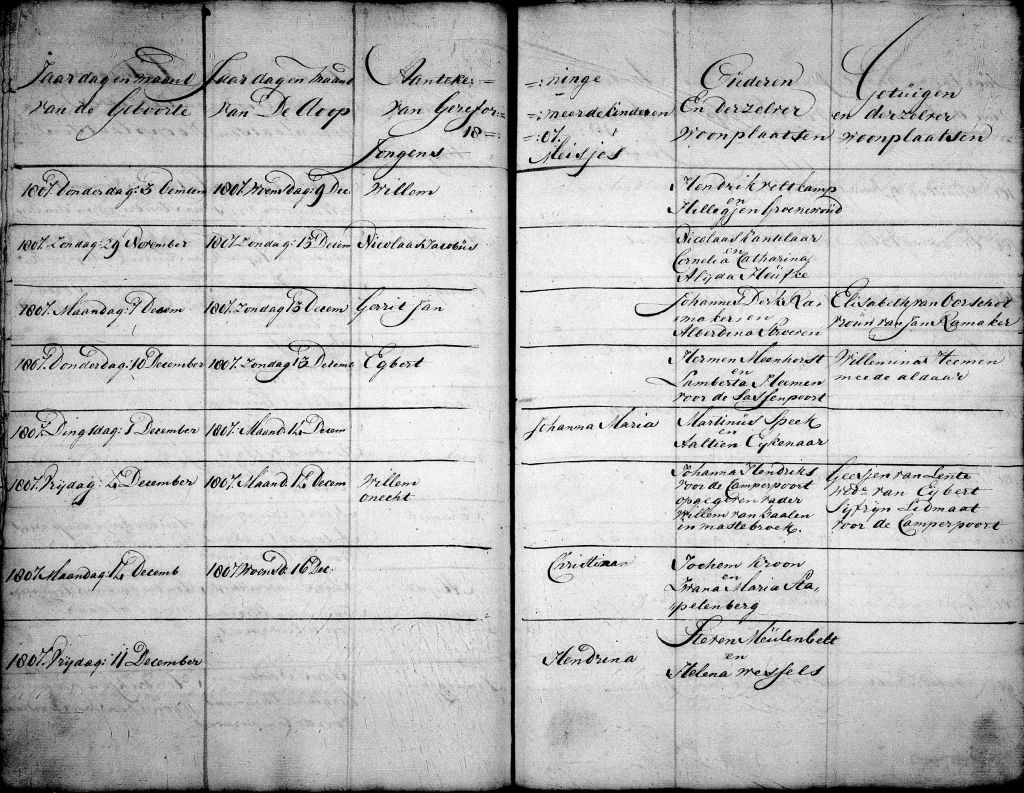 Jaar dag en maand
van de Geboorte
Jaar dag en maand
van De doop
Aanteke =
van Gerefor=
18=
Jongens
=:ninge
=:meerde kinderen
=:07.
Meisjes
Oüderen
En derzelver
woonplaatsen
Getüigen
en derzelver
woonplaatsen
1807. Donderdag: 3 Decem
1807. Woensdag: 9 Dec
Willem
Hendrik
en
Hillegjen Groenewoüd
1807. Zondag: 29 November
1807. Zondag: 13 Decem
Nicolaas Jacobüs
Nicolaas Kantelaar
en
Cornelia Catharina
Alyda Heüfke
1807. Maandag: 7 Decem
1807. Zondag 13 Decem
Gerrit Jan
Johannes Derk Ra,
maker, en
Alberdina
Elisabeth van Oorschot
vroüw van Jan Ramaker
1807. Donderdag: 10 December
1807. Zondag: 13 Decemb
Egbert
Hermen
en
Lamberta Heemen
voor de Sassenpoort
Willemina Heemen
meede aldaar
1807. Dingsdag: 8 December
1807. Maand. 14 Decem
Johanna Maria
Martinüs Speek
en
Aaltien Eykenaar
1807. Vrijdag: 4 December
1807. Maand. 14 Decem
Willem
onecht
Johanna Hendriks
voor de Camperpoort
opgegeven vader
Willem van Haalen
in mastebroek.
Geesjen van Lente
wede van Egbert
Syfryn Lidmaat
voor de Camperpoort
1807. Maandag: 14 Decemb
1807. Woensd: 16 Dec.
Christiaan
Jochem Kroon
en
Maria Sta,
pelenberg
1807. Vrijdag: 11 December
Hendrina
Steven Meülenbelt
en
Helena Wessels